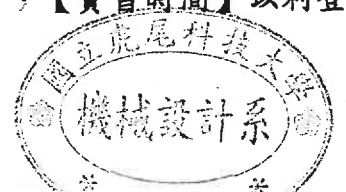 【實習時間】以利登
國立虎尾科技大學
機械設計系